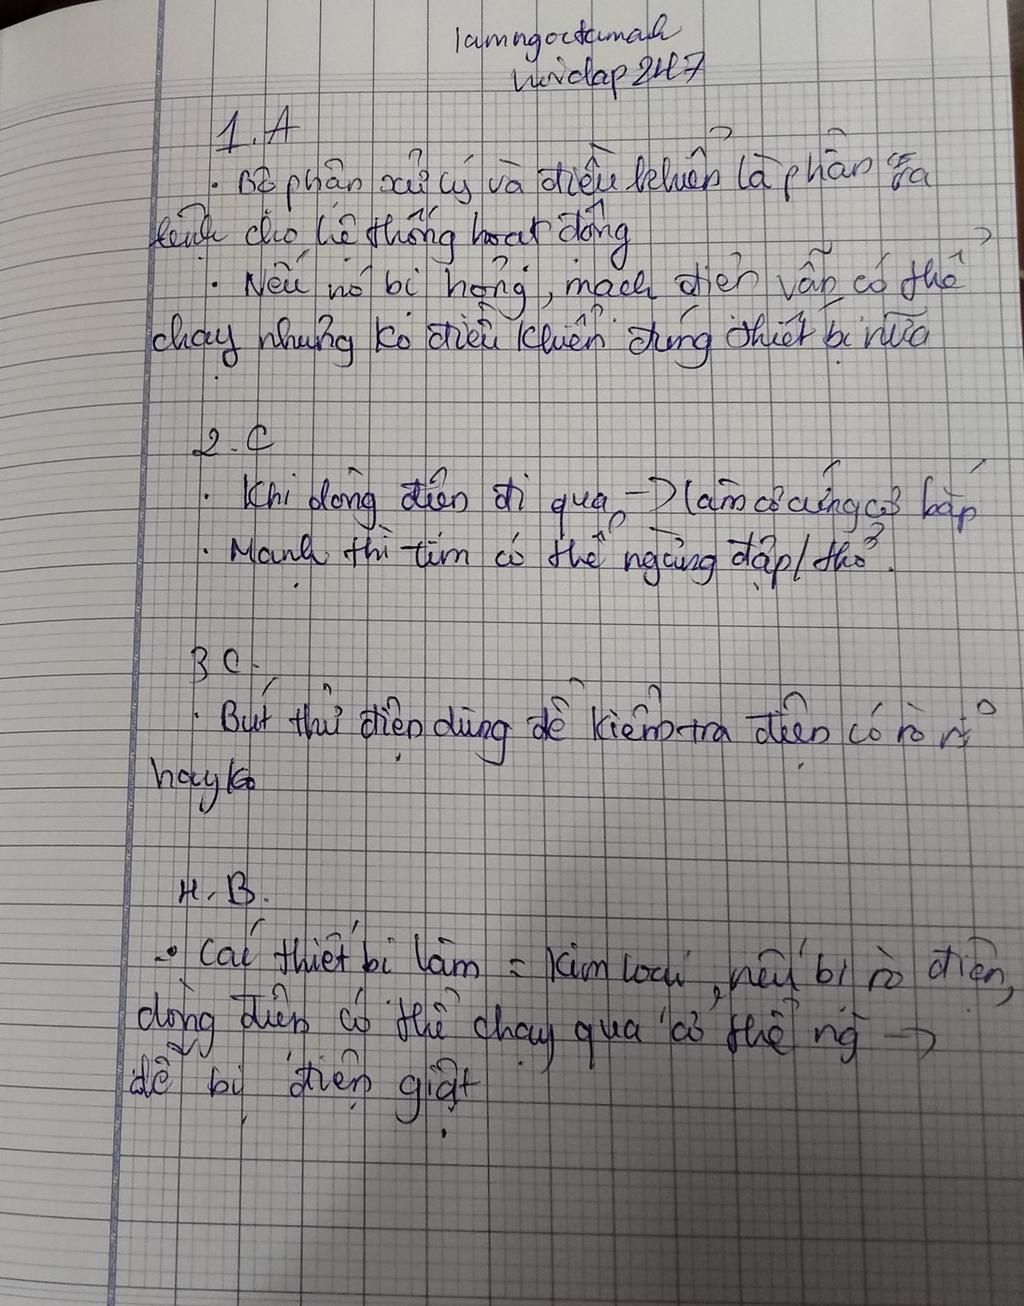 lamngoctumah
vuidap247
1. A
. Bộ phận xử lý và điều khiển là phần ra
lệnh cho hệ thống hoạt động
. Nếu nó bị hỏng, mạch điện vẫn có thể
chạy nhưng ko điều khiển đúng thiết bị nữa
2. C
. Khi dòng điện đi qua, -> làm co cứng cơ bắp
. Mạnh thì tim có thể ngừng đập/thở.
3 C.
. Bút thử điện dùng để kiểm tra điện có rò rỉ
hay ko
4. B.
. Các thiết bị làm = kim loại, nếu bị rò điện,
dòng điện có thể chạy qua cơ thể ng ->
dễ bị điện giật